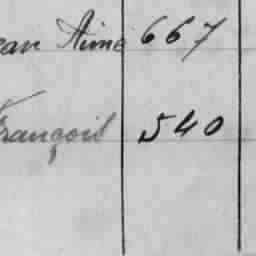 ean Aimé 667
François 540